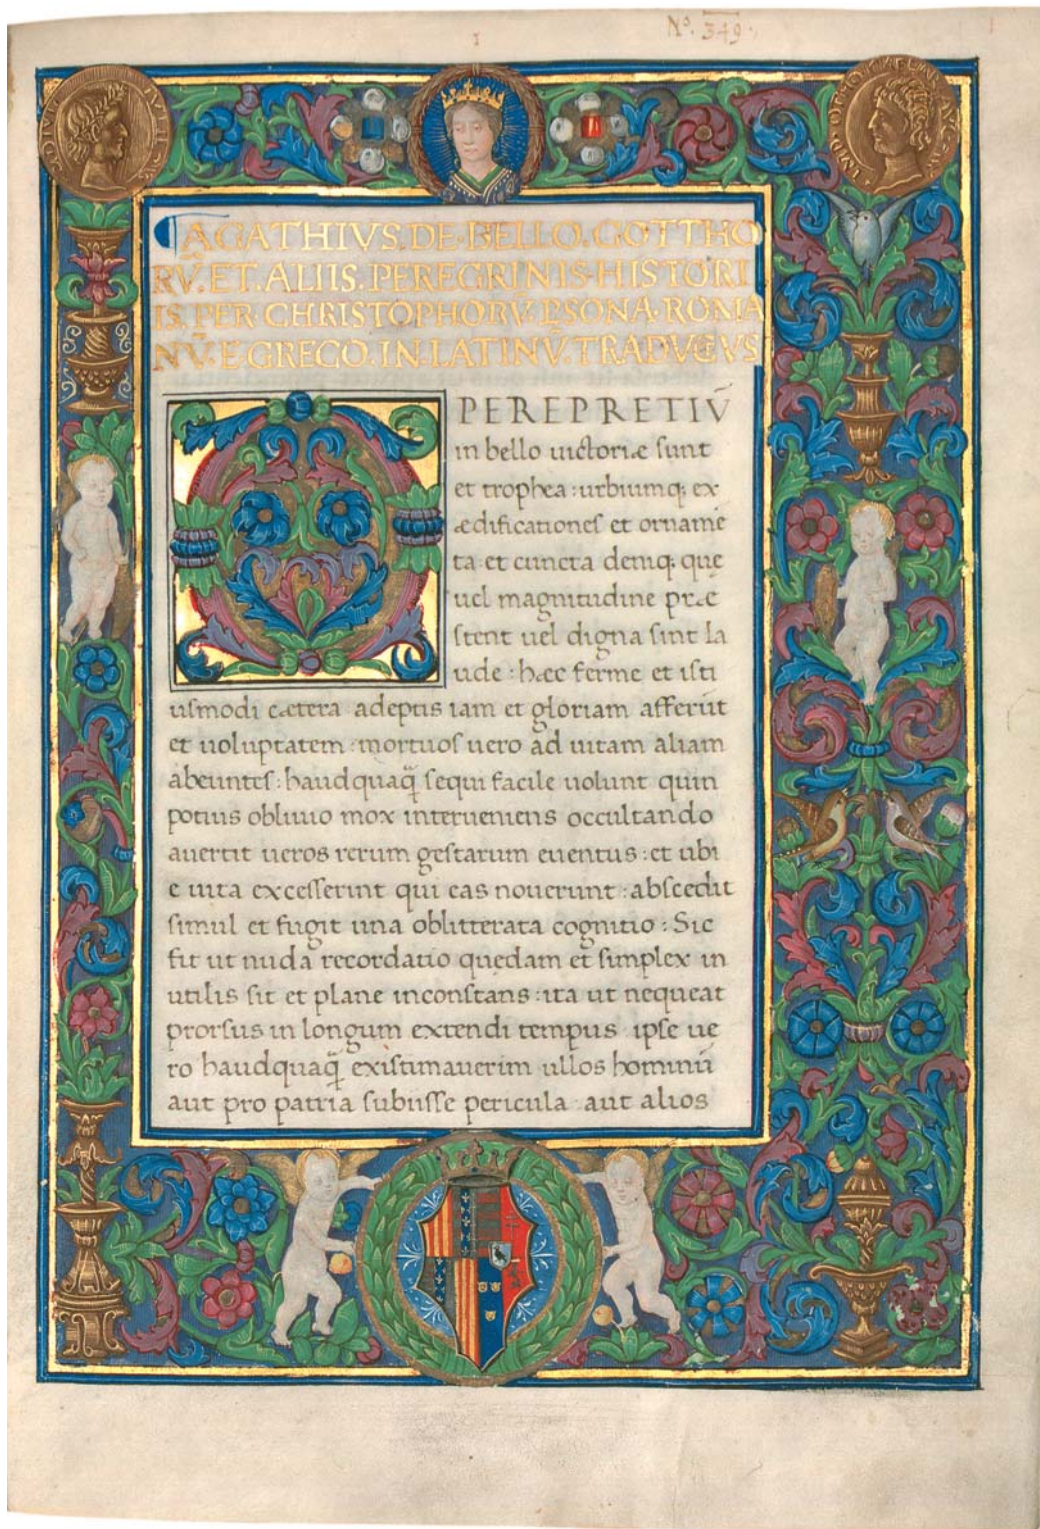 1
Nº. 349.
AGATHIVS. DE. BELLO. GOTTHO
RV̄. ET. ALIIS. PEREGRINIS. HISTORI
IS. PER. CHRISTOPHORV̄. PSONA. ROMA
NV̄. E GRECO. IN. LATINV̄. TRADVCVS
O PERE PRETIV̄
in bello uictoriæ sunt
et trophea : urbiumq; ex
ædificationes et ornamē
ta et cuncta demq; quę
uel magnitudine præ
stent uel digna sint la
ude : hæc ferme et isti
usmodi cætera adeptis iam et gloriam afferūt
et uoluptatem : mortuos uero ad uitam aliam
abeuntes : haudquaq̄ sequi facile uolunt quin
potius obliuio mox interueniens occultando
auertit ueros rerum gestarum euentus : et ubi
e uita excesserint qui eas nouerunt : abscedit
simul et fugit una oblitterata cognitio : Sic
fit ut nuda recordatio quędam et simplex in
utilis sit et plane inconstans : ita ut nequeat
prorsus in longum extendi tempus ipse ue
ro haudquaq̄ existimauerim ullos hominū
aut pro patria subiisse pericula aut alios